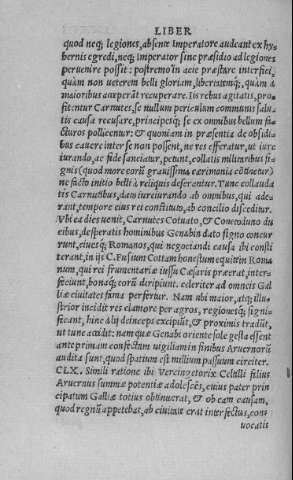 LIBER
quod neq; legiones, absente Imperatore audeant ex hy
bernis egredi, neq; imperator sine præsidio ad legiones
peruenire possit: postremo in acie præstare interfici,
quàm non ueterem belli gloriam, libertatemq;, quàm à
maioribus acceperāt recuperare. In rebus agitatis, pro
fitentur Carnutes, se nullum periculum communis salu
tis causa recusare, principesq; se ex omnibus bellum fa
cturos pollicentur: & quoniam in præsentia de obsidi
bus cauere inter se non possent, ne res efferatur, ut iure
iurando, ac fide sanciatur, petunt, collatis militaribus si
gnis (quod more eorū grauissima cærimonia cōtinetur)
ne facto initio belli à reliquis deserantur. Tunc collauda
tis Carnutibus, dato iureiurando ab omnibus, qui ade
rant, tempore eius rei constituto, ab concilio disceditur.
Vbi ea dies uenit, Carnutes Cotuato, & Conetoduno du
cibus, desperatis hominibus Genabin dato signo concur
runt, ciuesq; Romanos, qui negociandi causa ibi consti
terant, in ijs C. Fusium Cottam honestum equitem Roma
num, qui rei frumentariæ iussu Cæsaris præerat, inter=
ficiunt, bonaq; eorū diripiunt. celeriter ad omneis Gal
liæ ciuitates fama perfertur. Nam ubi maior, atq; illu=
strior incidit res clamore per agros, regionesq; signi=
ficant, hinc alij deinceps excipiūt, & proximis tradūt,
ut tunc accidit: nam quæ Genabi oriente sole gesta essent
ante primam confectam uigiliam in finibus Aruernorū
audita sunt, quod spatium est millium passuum circiter
CLX. Simili ratione ibi Vercingetorix Celtilli filius
Aruernus summæ potentiæ adolescēs, cuius pater prin
cipatum Galliæ totius obtinuerat, & ob eam causam,
quod regnū appetebat, ab ciuitate erat interfectus, con=
uocatis